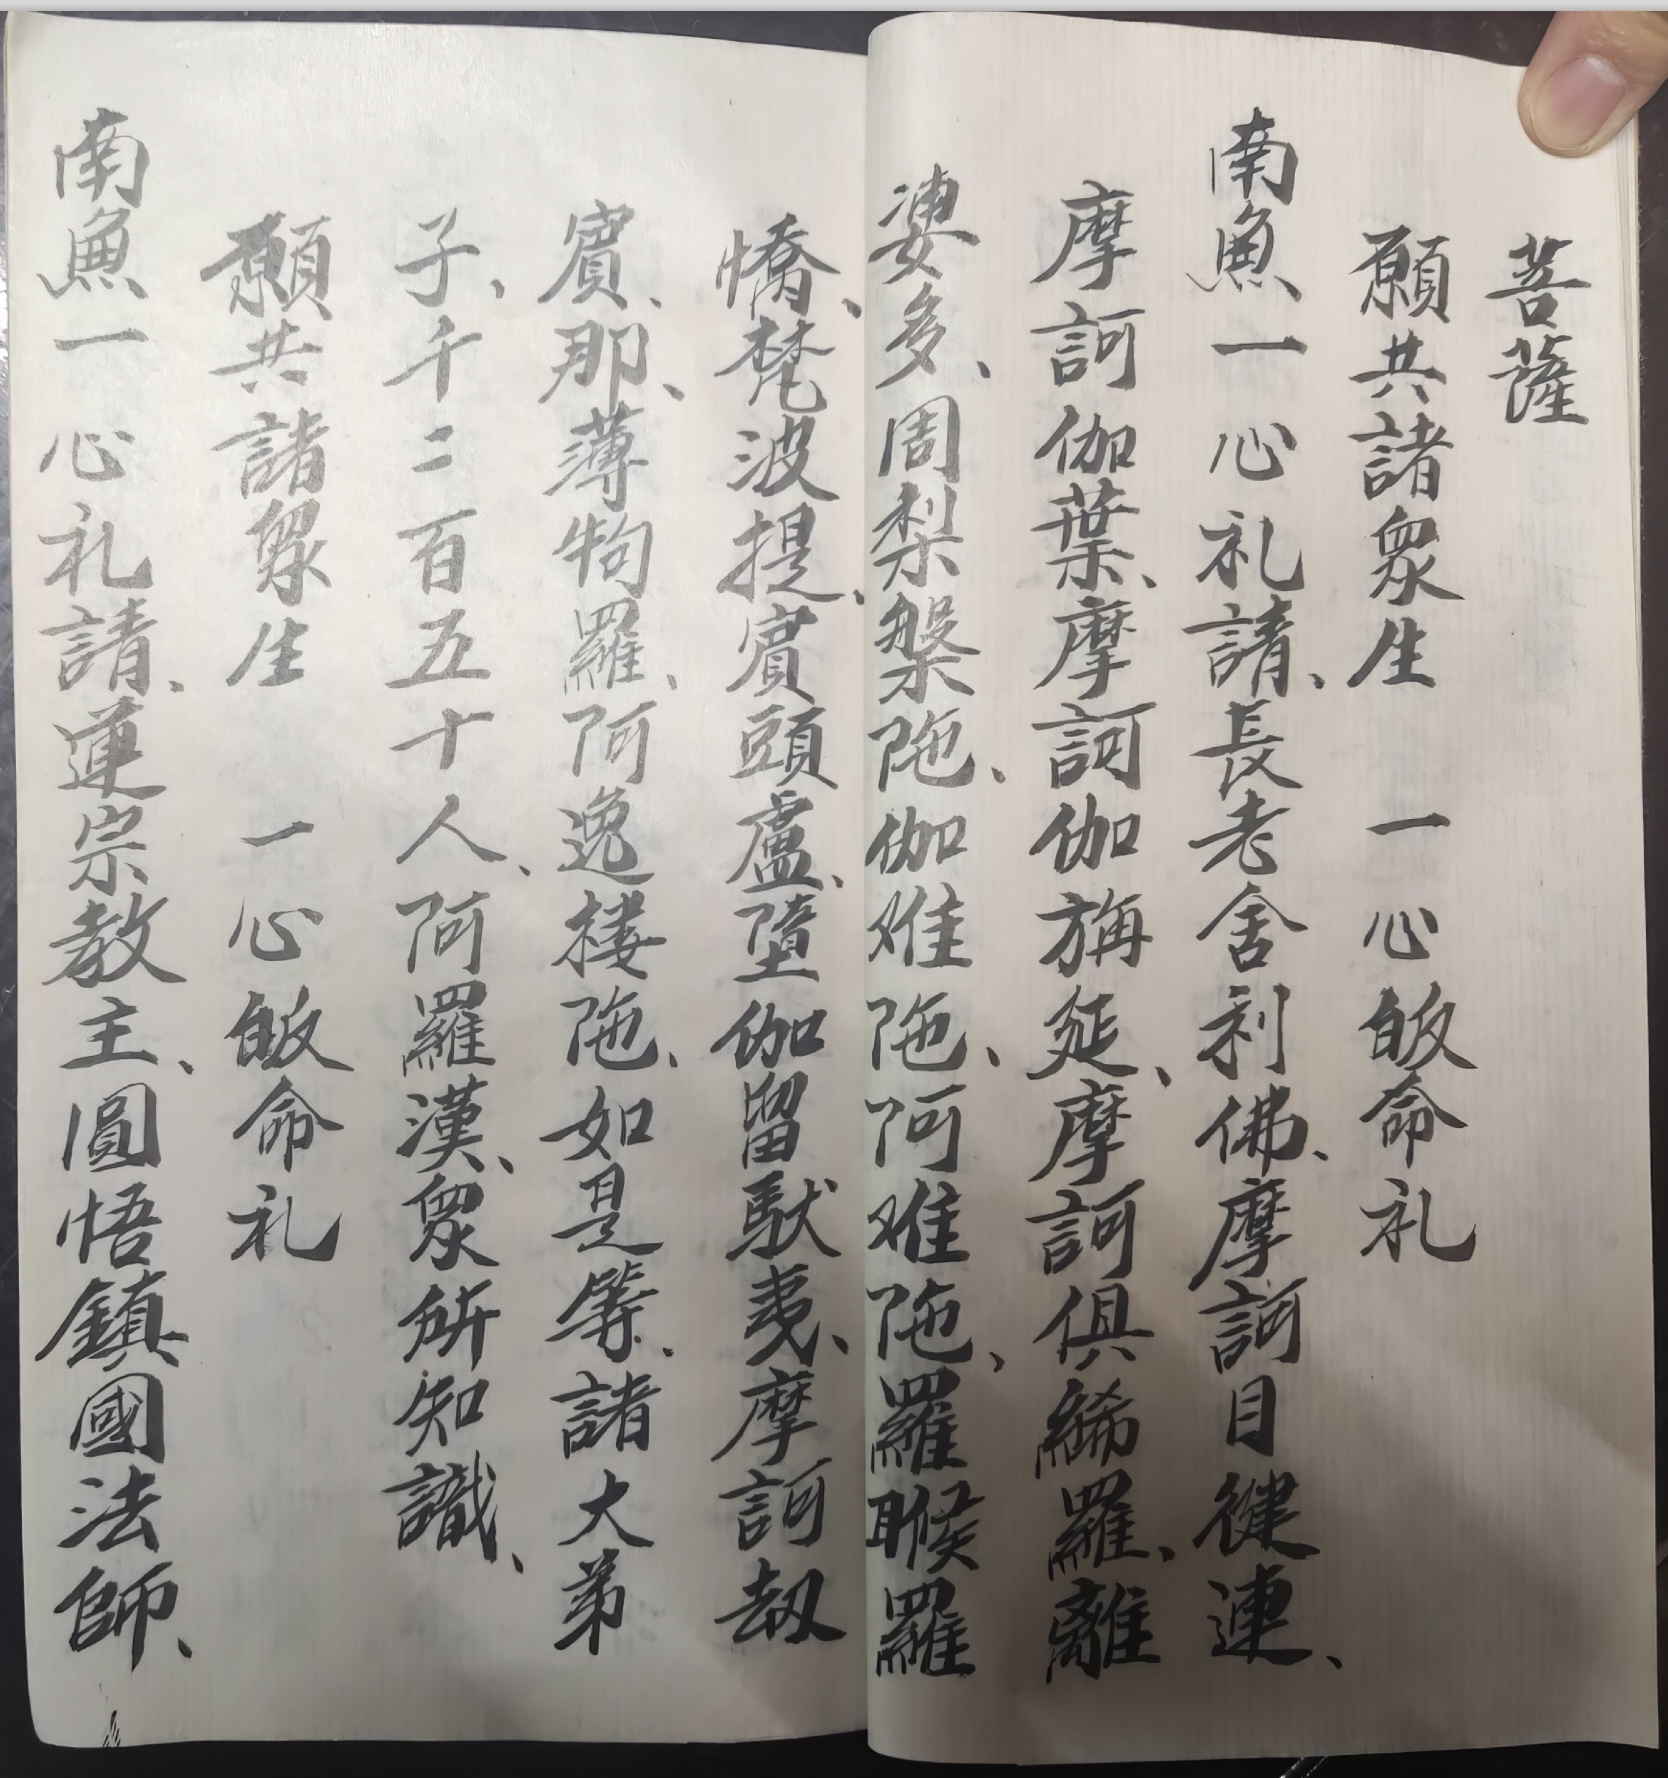 菩薩
願共諸眾生　一心皈命礼
南無一心礼請、長老舍利佛、摩訶目犍連、
摩訶伽葉、摩訶伽旃延、摩訶俱絺羅、離
婆多、周梨槃陁、伽难陁、阿难陁、羅睺羅
憍、梵波提、賓頭盧、墮伽留馱夷、摩訶劫
賓、那、薄拘羅、阿逸楼陁、如是等、諸大弟
子、千二百五十人、阿羅漢、眾所知識、
願共諸眾生　一心皈命礼
南無一心礼請、蓮宗教主、圓悟鎮國法師、